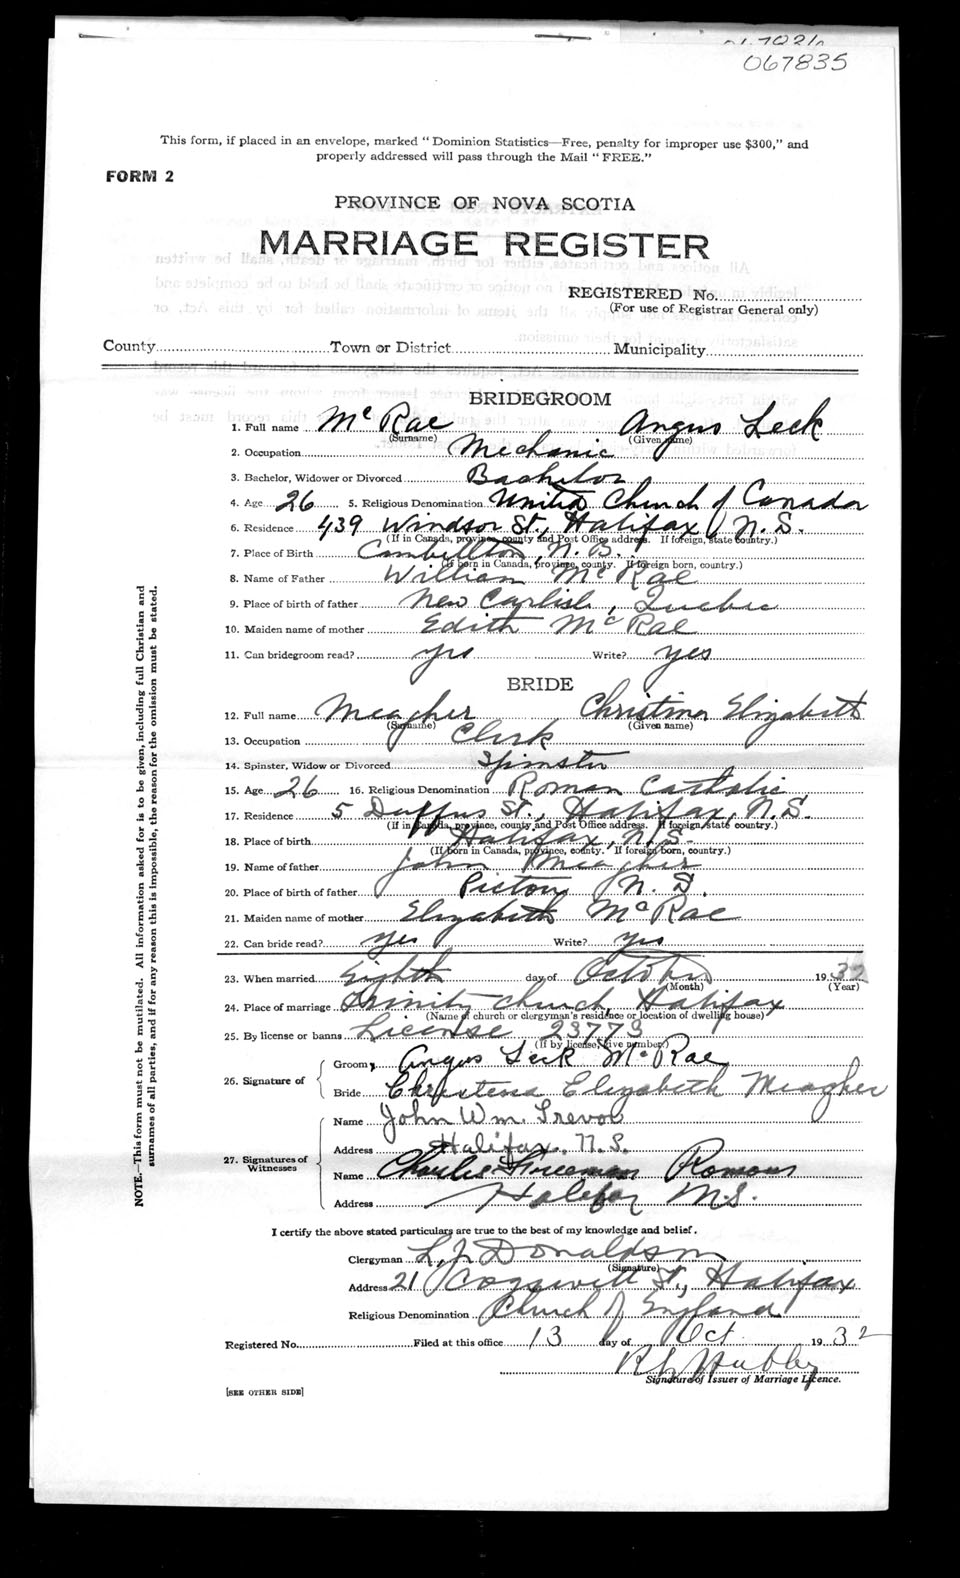 067835
This form, if placed in an envelope, marked "Dominion Statistics—Free, penalty for improper use $300," and
properly addressed will pass through the Mail "FREE."
FORM 2
PROVINCE OF NOVA SCOTIA
MARRIAGE REGISTER
REGISTERED No.
(For use of Registrar General only)
County Town or District Municipality
BRIDEGROOM
1. Full name McRae Angus Leck
(Surname) (Given name)
2. Occupation Mechanic
3. Bachelor, Widower or Divorced Bachelor
4. Age 26 5. Religious Denomination United Church of Canada
6. Residence 439 Windsor St., Halifax, N.S.
(If in Canada, province, county and Post Office address. If foreign, state country.)
7. Place of Birth Cambellton, N.B.
(If born in Canada, province, county. If foreign born, country.)
8. Name of Father William McRae
9. Place of birth of father New Carlisle, Quebec
10. Maiden name of mother Edith McRae
11. Can bridegroom read? yes Write? yes
BRIDE
12. Full name Meagher Christina Elizabeth
(Surname) (Given name)
13. Occupation Clerk
14. Spinster, Widow or Divorced Spinster
15. Age 26 16. Religious Denomination Roman Catholic
17. Residence 5 Duffus St., Halifax, N.S.
(If in Canada, province, county and Post Office address. If foreign, state country.)
18. Place of birth Halifax, N.S.
(If born in Canada, province, county. If foreign born, country.)
19. Name of father John Meagher
20. Place of birth of father Pictou N.S.
21. Maiden name of mother Elizabeth McRae
22. Can bride read? yes Write? yes
23. When married Eighth day of October 1932
(Month) (Year)
24. Place of marriage Trinity Church, Halifax
(Name of church or clergyman's residence or location of dwelling house)
25. By license or banns License 23773
(If by license, give number)
26. Signature of
Groom Angus Leck McRae
Bride Christena Elizabeth Meagher
27. Signatures of Witnesses
Name John Wm. Trevor
Address Halifax. N.S.
Name Charles Freeman Romans
Address Halifax N.S.
I certify the above stated particulars are true to the best of my knowledge and belief.
Clergyman L.J. Donaldson
(Signature)
Address 21 Cogswell St., Halifax
Religious Denomination Church of England
Registered No. Filed at this office 13 day of Oct 1932
Signature of Issuer of Marriage Licence.
[SEE OTHER SIDE]
NOTE.—This form must not be mutilated. All information asked for is to be given, including full Christian and
surnames of all parties, and if for any reason this is impossible, the reason for the omission must be stated.